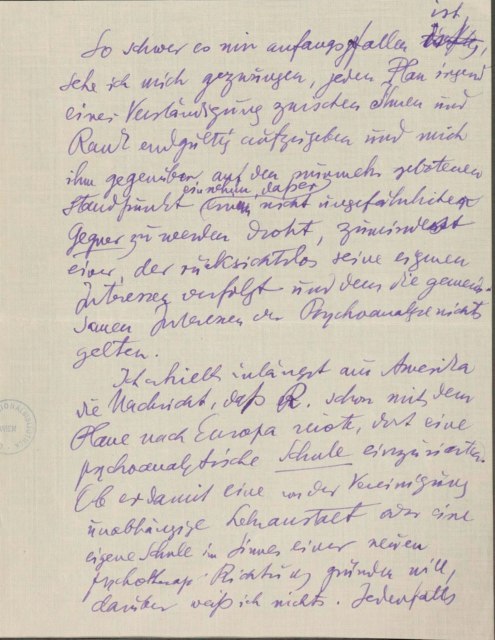 ist,
So schwer es mir anfangs gefallen
sehe ich mich gezwungen, jeden Plan irgend
einer Verständigung zwischen Ihnen und
Rank endgültig aufzugeben und mich
ihm gegenüber auf den nunmehr gebotenen
einnehmen, daß er
Standpunkt nicht ungefährlicher
Gegner zu werden droht, zumindest
einer, der rücksichtslos seine eigenen
Interessen verfolgt und dem die gemein-
samen Interessen der Psychoanalyse nichts
gelten.
Ich erhielt unlängst aus Amerika
die Nachricht, daß R. schon mit dem
Plane nach Europa reiste, dort eine
psychoanalytische Schule einzurichten.
Ob er damit eine von der Vereinigung
unabhängige Lehranstalt oder eine
eigene Schule im Sinne einer neuen
psychotherap. Richtung gründen will,
darüber weiß ich nichts. Jedenfalls